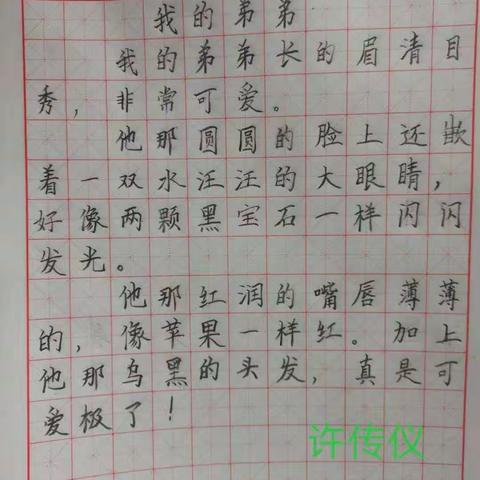 我的弟弟
我的弟弟长的眉清目
秀，非常可爱。
他那圆圆的脸上还嵌
着一双水汪汪的大眼睛，
好像两颗黑宝石一样闪闪
发光。
他那红润的嘴唇薄薄
的，像苹果一样红。加上
他那乌黑的头发，真是可
爱极了！
许传仪